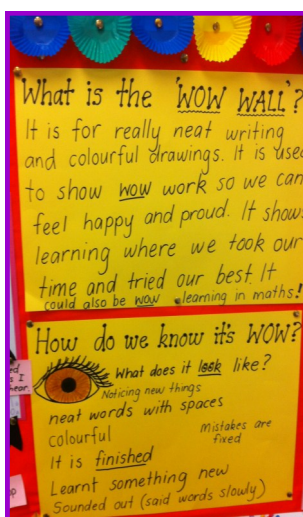 What is the 'WOW WALL'?
It is for really neat writing
and colourful drawings. It is used
to show wow work so we can
feel happy and proud. It shows
learning where we took our
time and tried our best. It
could also be wow learning in maths!
How do we know it's WOW?
What does it look like?
Noticing new things
neat words with spaces
colourful
Mistakes are
fixed
It is finished
Learnt something new
Sounded out (said words slowly)